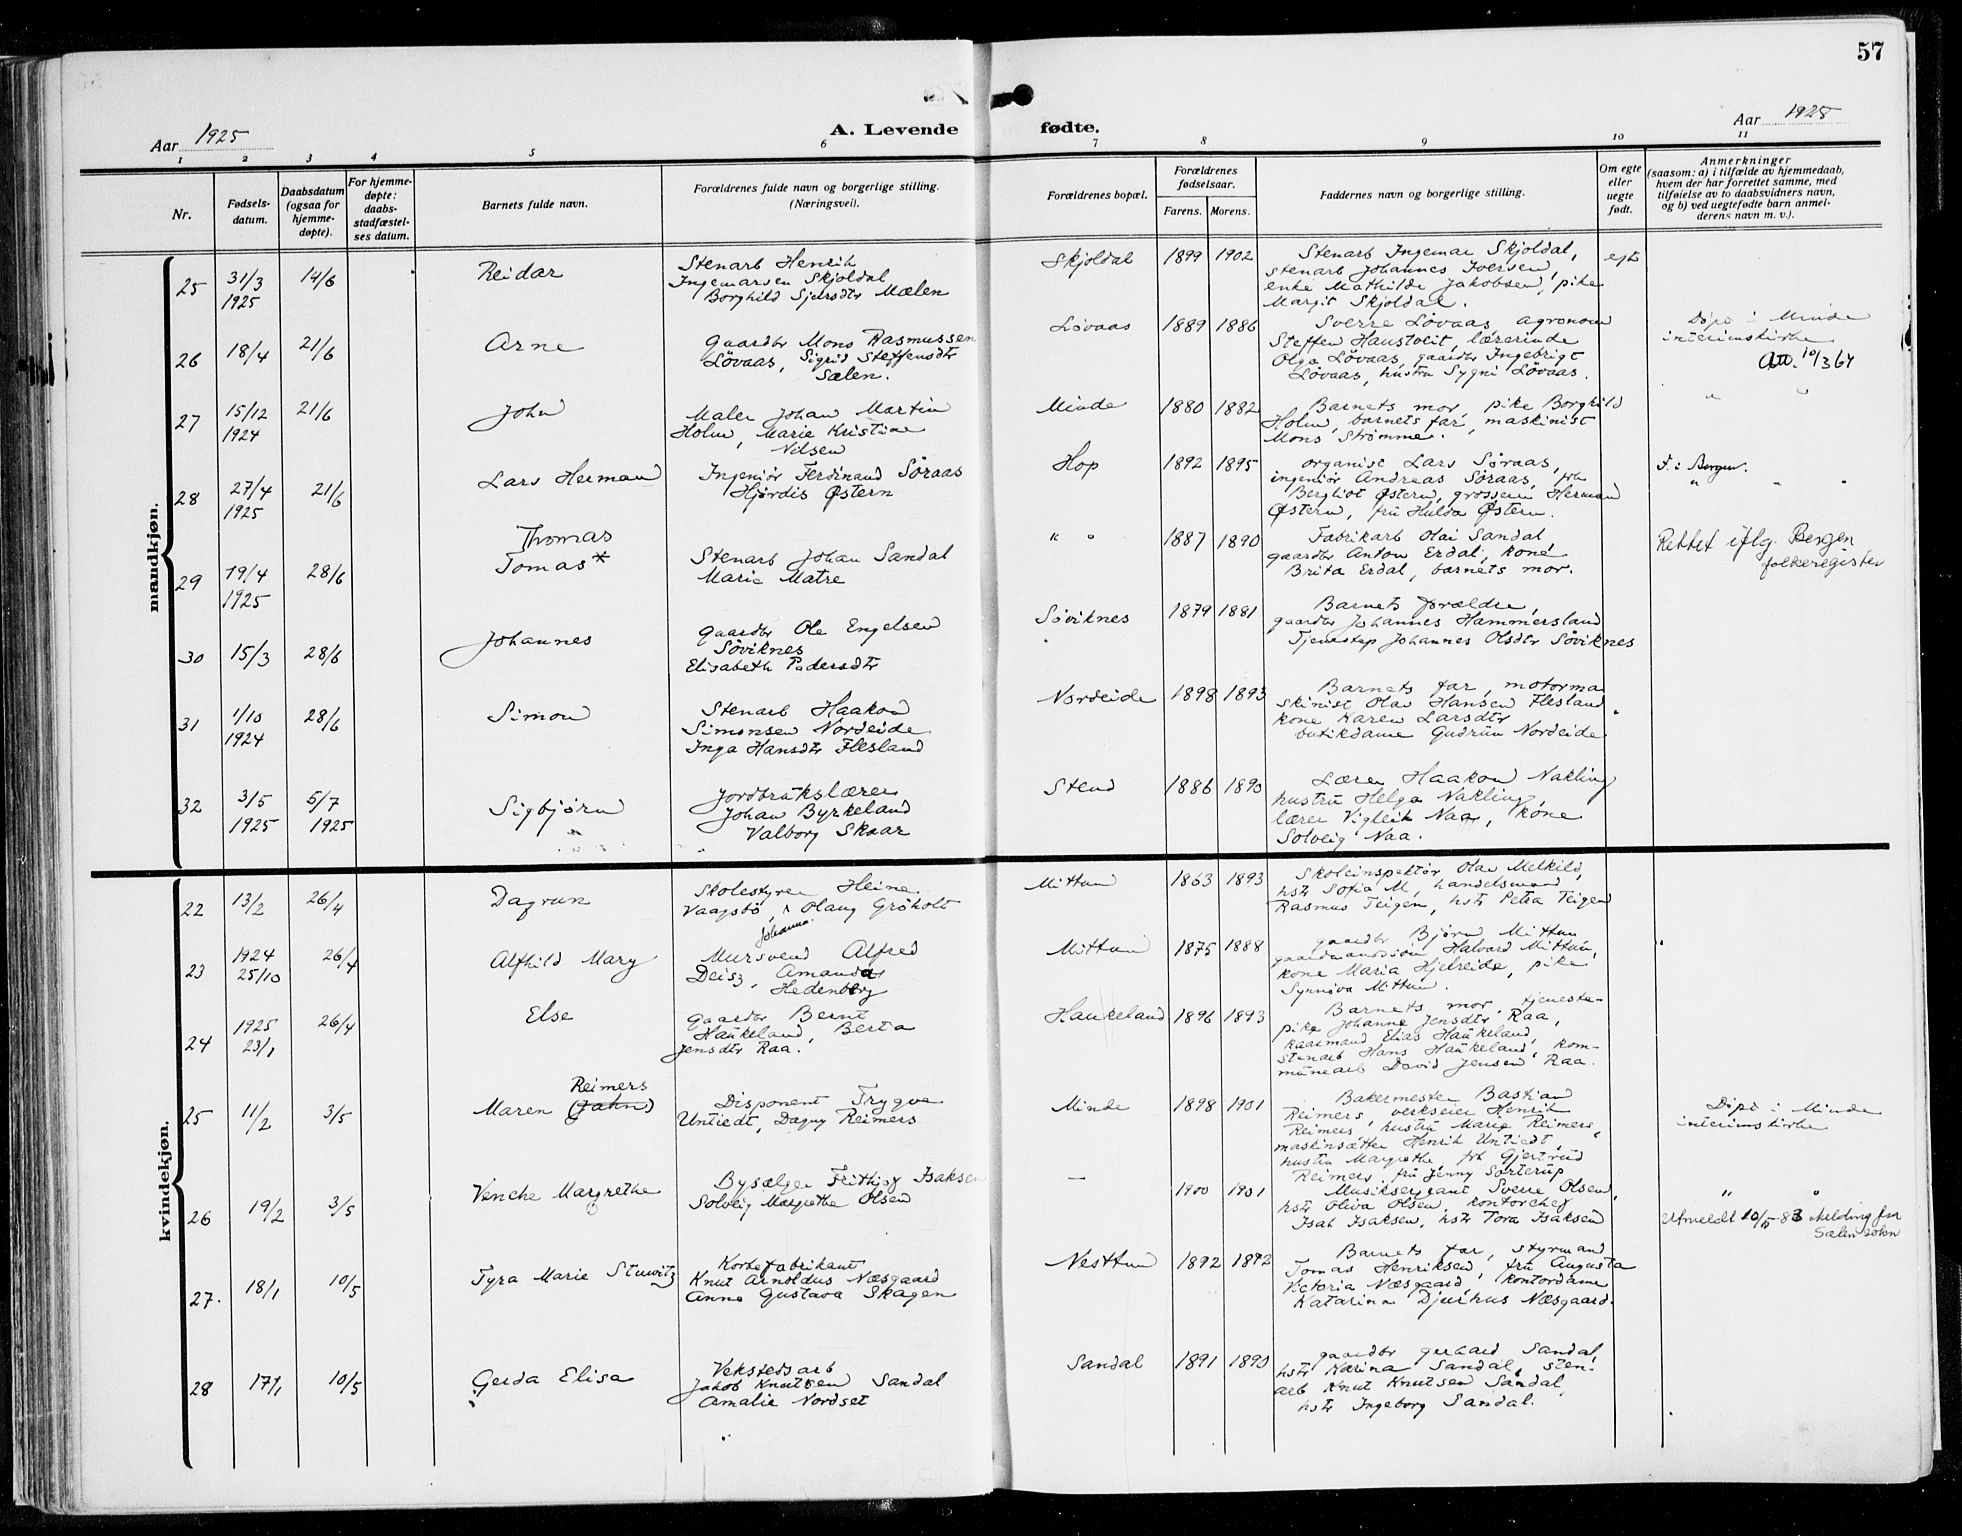 57
Aar 1925
A. Levende fødte.
Aar 1925
1 2 3 4 5 6 7 8 9 10 11
Nr.
Fødsels-
datum.
Daabsdatum
(ogsaa for
hjemme-
døpte).
For hjemme-
døpte:
daabs-
stadfæstel-
ses datum.
Barnets fulde navn.
Forældrenes fulde navn og borgerlige stilling.
(Næringsvei).
Forældrenes bopæl.
Forældrenes
fødselsaar.
Farens. Morens.
Faddernes navn og borgerlige stilling.
Om egte
eller
uegte
født.
Anmerkninger
(saasom: a) i tilfælde av hjemmedaab,
hvem der har forrettet samme, med
tilføielse av to daabsvidners navn,
og b) ved uegtefødte barn anmel-
derens navn m. v.).
mandkjøn.
25 31/3 1925 14/6 Reidar
Stenarb Henrik
Ingemarsen Skjoldal
Borghild Sjursdtr Mælen
Skjoldal 1899 1902
Stenarb Ingemar Skjoldal,
stenarb Johannes Iversen,
enke Mathilde Jakobsen, pike
Margit Skjoldal.
egte
26 18/4 21/6 Arne
Gaardbr Mons Rasmussen
Løvaas, Sigrid Steffensdtr
Sælen.
Løvaas 1889 1886
Sverre Løvaas agronom
Steffen Haustveit, lærerinde
Olga Løvaas, gaardbr Ingebrigt
Løvaas, hustru Sygni Løvaas.
Døpt i Minde
interimskirke
Att. 10/3 64
27 15/12 1924 21/6 John
Maler Johan Martin
Holm, Marie Kristine
Nilsen
Minde 1880 1882
Barnets mor, pike Borghild
Holm, barnets far, maskinist
Mons Strømme.
" "
28 27/4 1925 21/6 Lars Herman
Ingeniør Ferdinand Søraas
Hjørdis Østern
Hop 1892 1895
Organist Lars Søraas,
ingeniør Andreas Søraas, frk
Bergliot Østern, grosserer Herman
Østern, fru Hulda Østern.
F. i Bergen.
" " "
29 19/4 1925 28/6
Thomas
Tomas*
Stenarb Johan Sandal
Marie Matre
" " 1887 1890
Fabrikarb Olai Sandal,
gaardbr Anton Erdal, kone
Brita Erdal, barnets mor.
Rettet iflg. Bergen
folkeregister
30 15/3 28/6 Johannes
Gaardbr Ole Engelsen
Søviknes
Elisabeth Pedersdtr
Søviknes 1879 1881
Barnets forældre,
gaardbr Johannes Hammersland
Tjenestep Johannes Olsdtr Søviknes
31 1/10 1924 28/6 Simon
Stenarb Haakon
Simonsen Nordeide
Inga Hansdtr Flesland
Nordeide 1898 1893
Barnets far, motorma
skinist Olav Hansen Flesland
kone Karen Larsdtr
butikdame Gudrun Nordeide.
32 3/5 1925 5/7 1925 Sigbjørn
Jordbrukslærer
Johan Byrkeland
Valborg Skaar
Stend 1886 1890
Lærer Haakon Nakling
hustru Helga Nakling,
lærer Vigleik Naa, kone
Solveig Naa.
kvindekjøn.
22 13/2 26/4 Dagrun
Skolestyrer Heine
Vaagsbø, Olaug Grøholt
Johanna
Mittun 1863 1893
Skoleinspektør Olav Melkild,
hstr Sofia M, handelsmand
Rasmus Teigen, hstr Petra Teigen
23 1924 25/10 26/4 Alfhild Mary
Mursvend Alfred
Deisz, Amanda
Hedenberg
Mittun 1875 1888
gaardbr Bjørn Mittun
gaardmandssøn Halvard Mittun,
kone Maria Hjelreide, pike
Synnøva Mittun.
24 1925 23/1 26/4 Else
Gaardbr Bernt
Haukeland, Berta
Jensdtr Raa.
Haukeland 1896 1893
Barnets mor, tjeneste-
pike Johanne Jensdtr Raa,
kaarmand Elias Haukeland,
stenarb Hans Haukeland, kom-
munearb David Jensen Raa.
25 11/2 3/5
Reimers
Maren (Jahn)
Disponent Trygve
Untiedt, Dagny Reimers
Minde 1898 1901
Bakermester Bastian
Reimers, verkseier Henrik
Reimers, hustru Marie Reimers,
maskinsætter Henrik Untiedt,
hustru Margrethe, frk Gjertrud
Reimers, fru Jenny Sørterup
Døpt i Minde
interimskirke
26 19/2 3/5 Venche Margrethe
Bysælger Frithjof Isaksen
Solveig Margrethe Olsen
— 1900 1901
Musiksergeant Sverre Olsen,
hstr Oliva Olsen, kontorchef
Isak Isaksen, hstr Tora Isaksen
" "
Utmeldt 10/5-83 Melding fra
Sælen sokn
27. 18/1 10/5 Tyra Marie Stuwitz
Korkefabrikant
Knut Arnoldus Næsgaard
Anna Gustava Skagen
Nesttun 1892 1892
Barnets far, styrmand
Tomas Henriksen, fru Augusta
Victoria Næsgaard, kontordame
Katarina Djurhus Næsgaard.
28 17/1 10/5 Gerda Elisa
Vekstedsarb
Jakob Knutsen Sandal
Amalie Nordset
Sandal 1891 1890
gaardbr Gerhard Sandal,
hstr Karina Sandal, sten-
arb Knut Knutsen Sandal,
hstr Ingeborg Sandal.